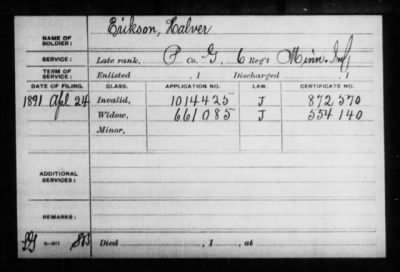 NAME OF SOLDIER: Erikson, Halver
SERVICE: Late rank, P Co. G, 6 Reg't Minn. Inf
TERM OF SERVICE: Enlisted , 1 Discharged , 1
DATE OF FILING. CLASS. APPLICATION NO. LAW. CERTIFICATE NO.
1891 Apl 24 Invalid, 1014425 J 872570
Widow, 661085 J 554140
Minor,
ADDITIONAL SERVICES:
REMARKS:
Died , 1 , at